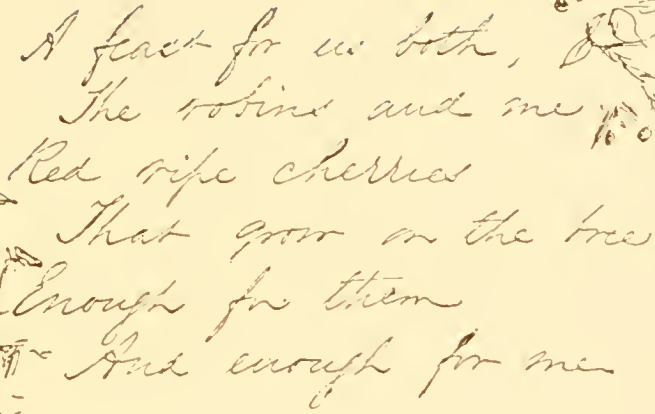 A feast for us both,
The robins and me
Red ripe cherries
That grow on the tree
Enough for them
And enough for me